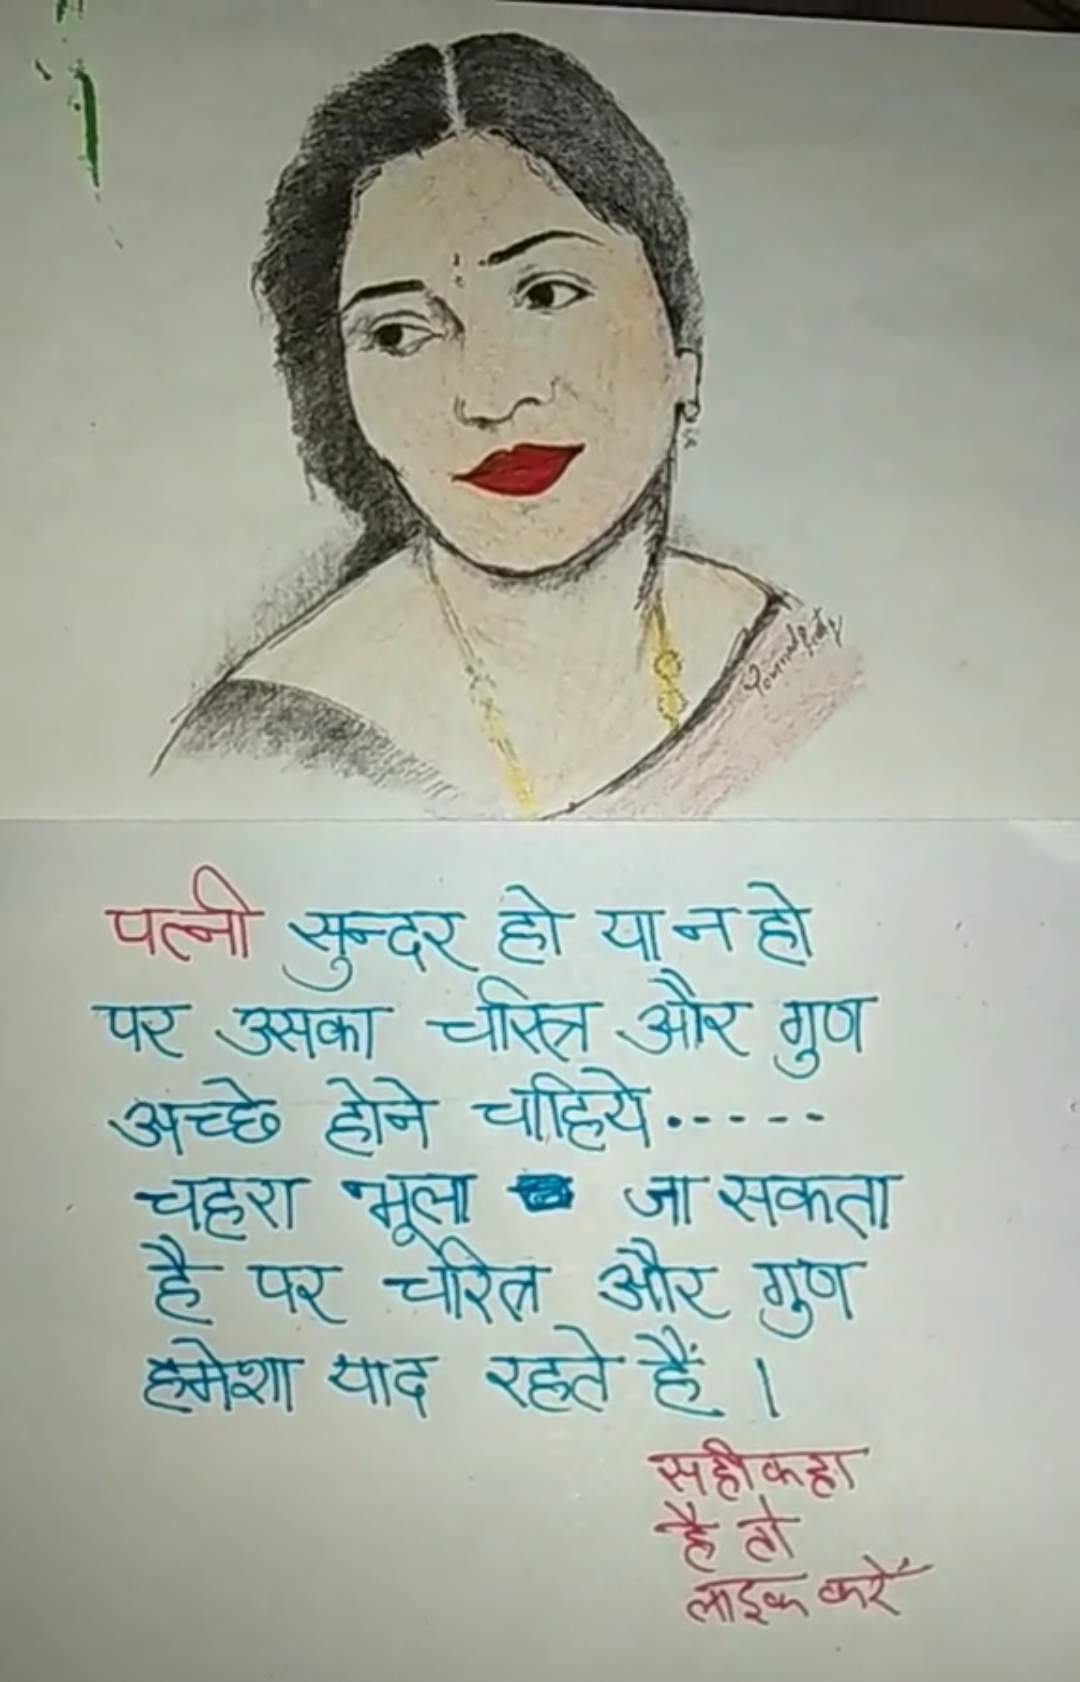 पत्नी सुन्दर हो या न हो
पर उसका चरित्र और गुण
अच्छे होने चहिये.....
चहरा भूला जा सकता
है पर चरित्र और गुण
हमेशा याद रहते हैं।
सही कहा
है तो
लाइक करें